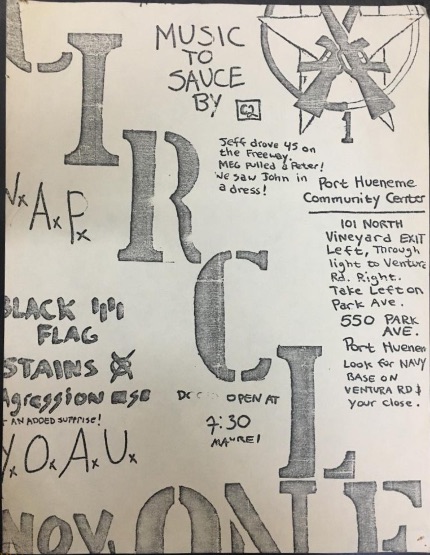 CIRCLE ONE
MUSIC
TO
SAUCE
BY C2
1
Jeff drove 45 on
the Freeway.
MEG pulled a Peter!
We saw John in
a dress!
Port Hueneme
Community Center
101 NORTH
Vineyard EXIT
Left, Through
light to Ventura
Rd. Right.
Take Left on
Park Ave.
550 PARK
AVE.
Port Huenem
Look for NAVY
BASE ON
VENTURA RD &
your close.
xA.xP.x
BLACK
FLAG
STAINS
Agression
AN ADDED SUrPrise!
Y.xO.xA.xU.x
OPEN AT
7:30
NOV.